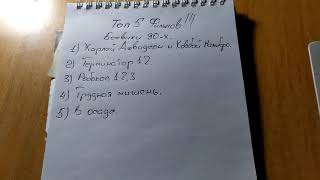 Топ 5 Фильмов!!!
Боевики 90-х.
1) Харлей Дэвидсон и Ковбой Мальборо.
2) Терминатор 1 2.
3) Робокоп 1,2,3
4) Трудная мишень.
5) В осаде.